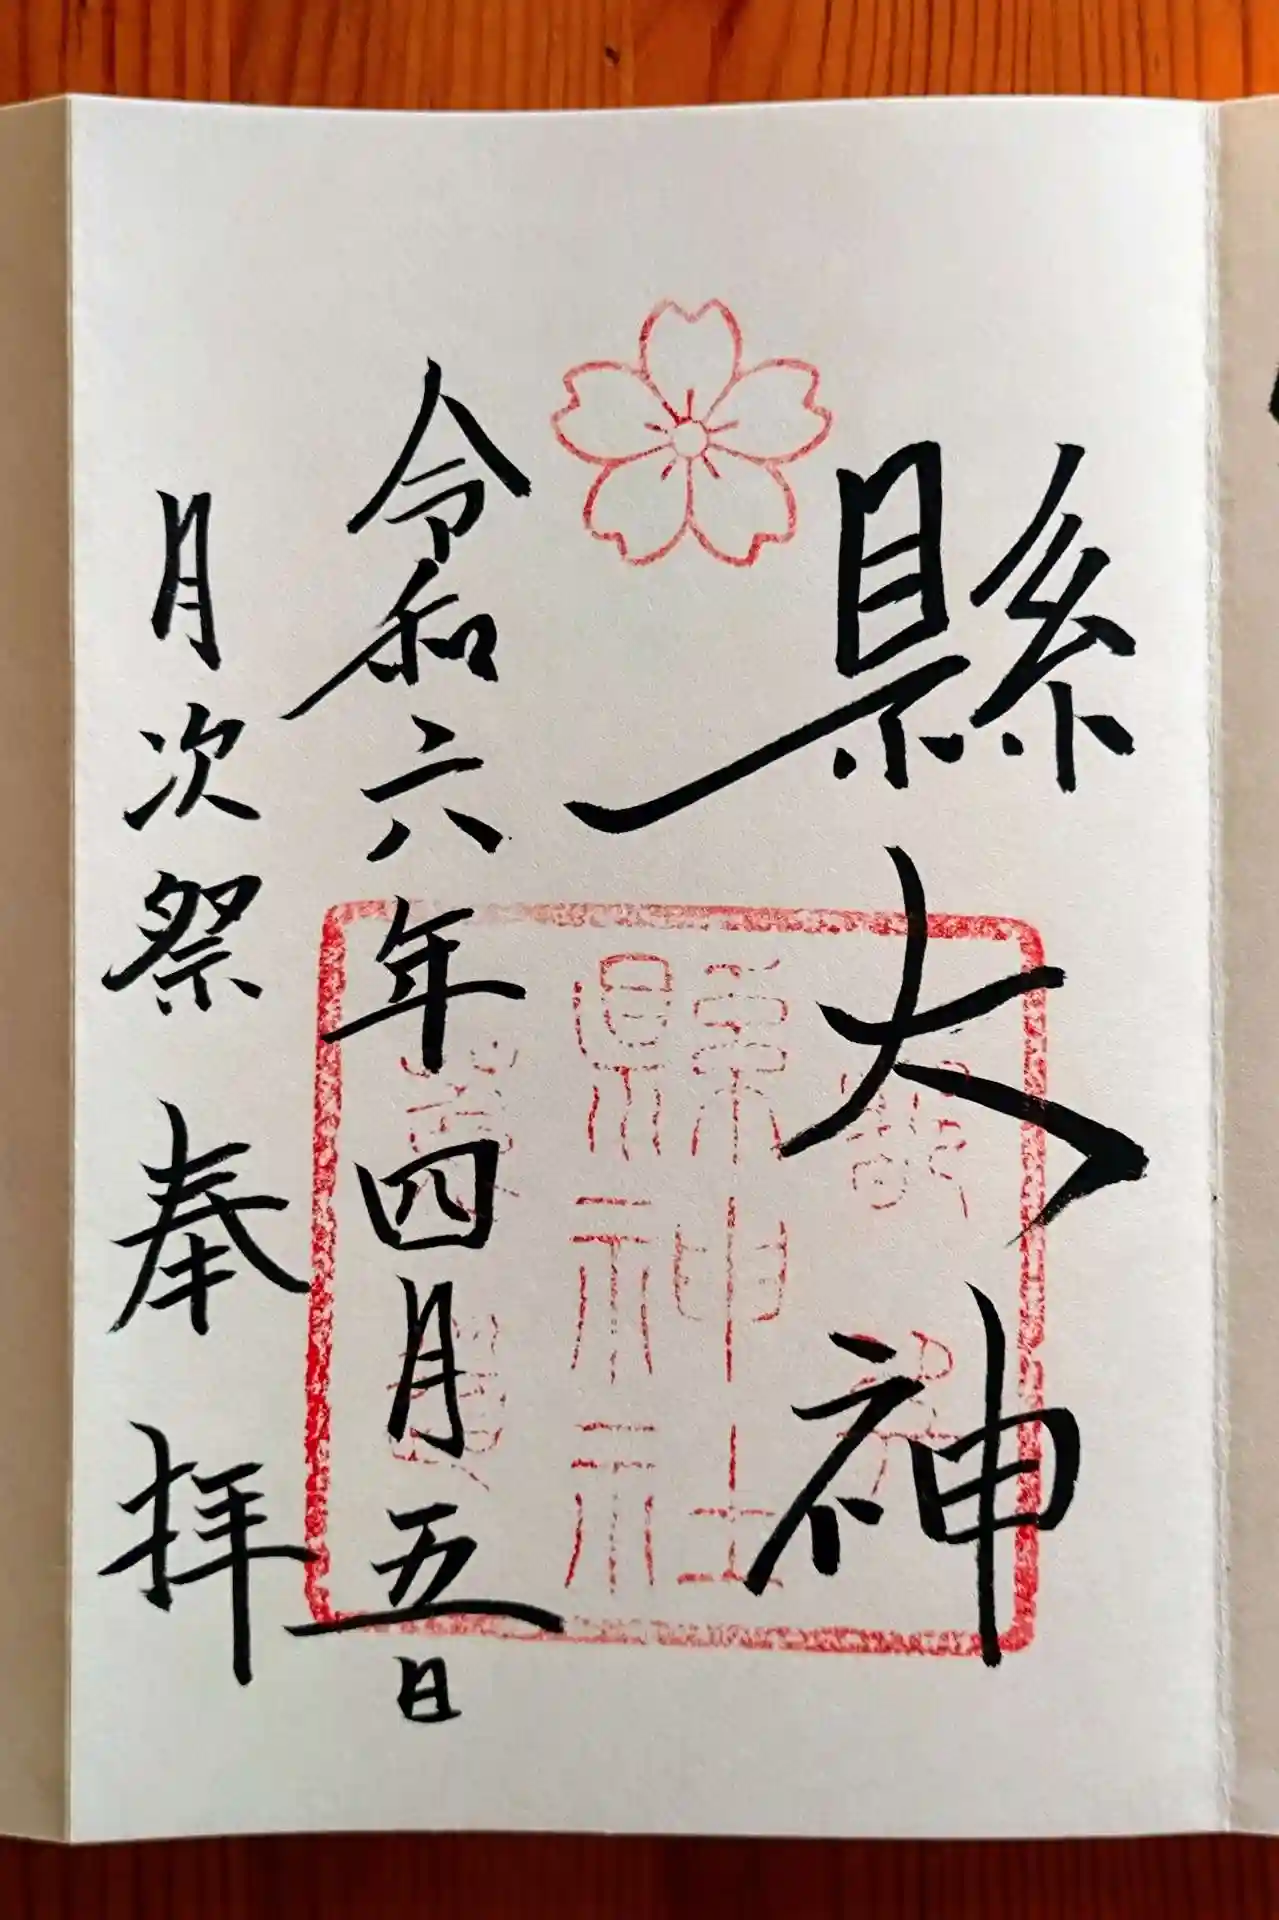 縣大神
令和六年四月五日
月次祭 奉拝
縣神社